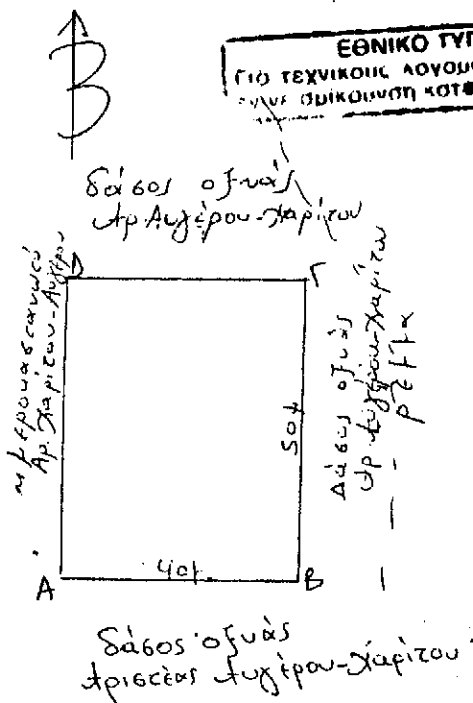 Β
ΕΘΝΙΚΟ ΤΥΠ
Για τεχνικούς λόγους
έγινε σμίκρυνση κατά
δάσος οξυάς
Αρ. Αυγέρου-Χαρίτου
ημεροκαστανωτό
Αρ. Χαρίτου-Αυγέρου
Δ
Γ
50μ
Δάσος οξυάς
Αρ. Αυγέρου-Χαρίτου
ρέμμα
Α
40μ
Β
δάσος οξυάς
Αριστέας Αυγέρου-Χαρίτου